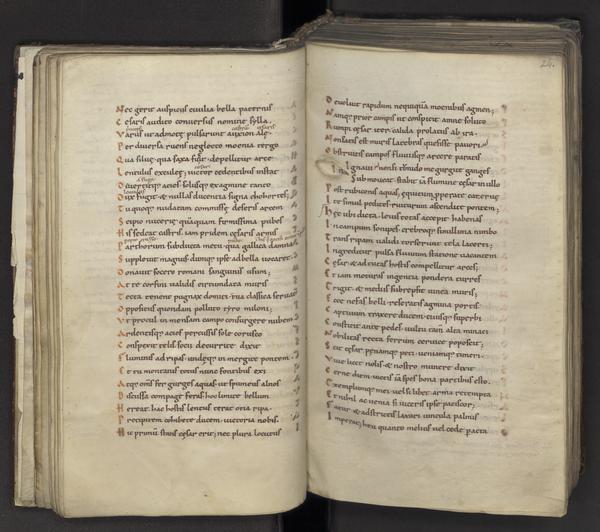 Nec gerit auspiciis civilia bella paternis
Cesaris audito conversus nomine sylla.
Varus ut admotę pulsarunt auxion alę
Per diversa ruens neglecto moenia tergo
Qua silvę qua saxa fugit depellitur arce
Lentulus exculea; victor cedentibus instat
Devertitque acies solusque ex agmine tanto
Dux fugit & nullas ducentia signa chohortes;
Tu quoque nudatam commissę deseris arcem
Scipio nucerię quamquam firmissima pubes
His sedeat castris. iam pridem cęsaris armis
Parthorum subducta metu. qua gallica damna
Supplevit magnus dumque ipse ad bella vocaret
Donavit socero romani sanguinis usum;
At te corfini validis circumdata muris
Tecta tenent pugnax domiti. tua classica servat
Oppositus quondam polluto tyro miloni;
Ut procul in mensam campo consurgere nubem
Ardentisque acies percussis sole corusco
Conspexit telis socii decurrite dixit
Fluminis ad ripas undęque in mergite pontem.
Et tu montanis totus nunc fontibus exi
Atque omnes fer gurges aquas ut spumeus alnos
Discussa compage feras hoc limite bellum
Hereat. hac hostis lentus terat otia ripa.
Precipitem cohibete ducem. victoria nobis.
Hic primum stans cęsar erit; nec plura locutus
24.
Devolvit rapidum nequiquam moenibus agmen;
Namque prior campis ut conspicit amne soluto
Rumpi cęsar iter calida prolatus ab ira.
Non satis est muris latebras quesisse pavori
Obstruitis campos fluviisque arcere paratis
Ignavi. non si tumido me gurgite ganges
Submoveat. stabit iam flumine cęsar in ullo
Post rubiconis aquas, equitum properate catervę
Ite simul pedites ruiturum ascendite pontem;
Hęc ubi dicta. levis totas accepit habenas
In campum sonipes. crebroque simillima nimbo
Trans ripam validi torserunt tela lacerti;
Ingreditur pulsa fluvium statione vacantem
Cęsar & ad tutas hostis compellitur arces;
Et iam moturas ingentia pondera turres
Erigit. & mediis subrepsit vinea muris;
Ecce nefas belli reseratis agmina portis
Captivum traxere ducem civisque superbi
Constitit ante pedes. vultu tamen alta minaci
Nobilitas recta ferrum cervice poposcit;
Scit cęsar pęnamque peti veniamque timeri.
Vive licet nolis & nostro munere dixit
Cerne diem. victis iam spes bona partibus esto.
Exemplumque mei. vel si libet arma retempta
Et nihil ac venia si viceris ipse paciscor;
Fatur. & adstrictis laxari vincula palmis
Imperat; heu quanto melius vel cede pacta